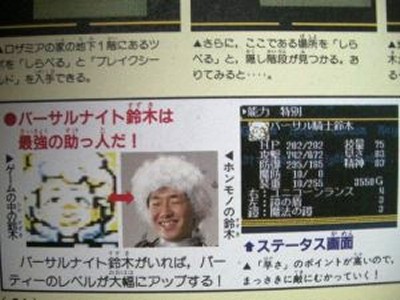 ▲ロザミアの家の地下1階にあるツ
ボを「しらべる」と「ブレイクシー
ルド」を入手できる。
▲さらに、ここである場所を「しら
べる」と、隠し階段が見つかる。お
りてみると‥‥。
●バーサルナイト鈴木は
最強の助っ人だ！
▶ゲームの中の鈴木
◀ホンモノの鈴木
バーサルナイト鈴木がいれば，パー
ティーのレベルが大幅にアップする！
▶能力 特別
バーサル騎士鈴木
HP 202/202 技量 75
攻撃 742/672 早さ 83
防御 295/195 精神 87
魔防 10/ 0
重さ 10/255 3550G
ユニコーンランス
鎧の盾
魔法の鎧
⬆ステータス画面
▲「早さ」のポイントが高いので，
まっさきに敵にむかっていく！